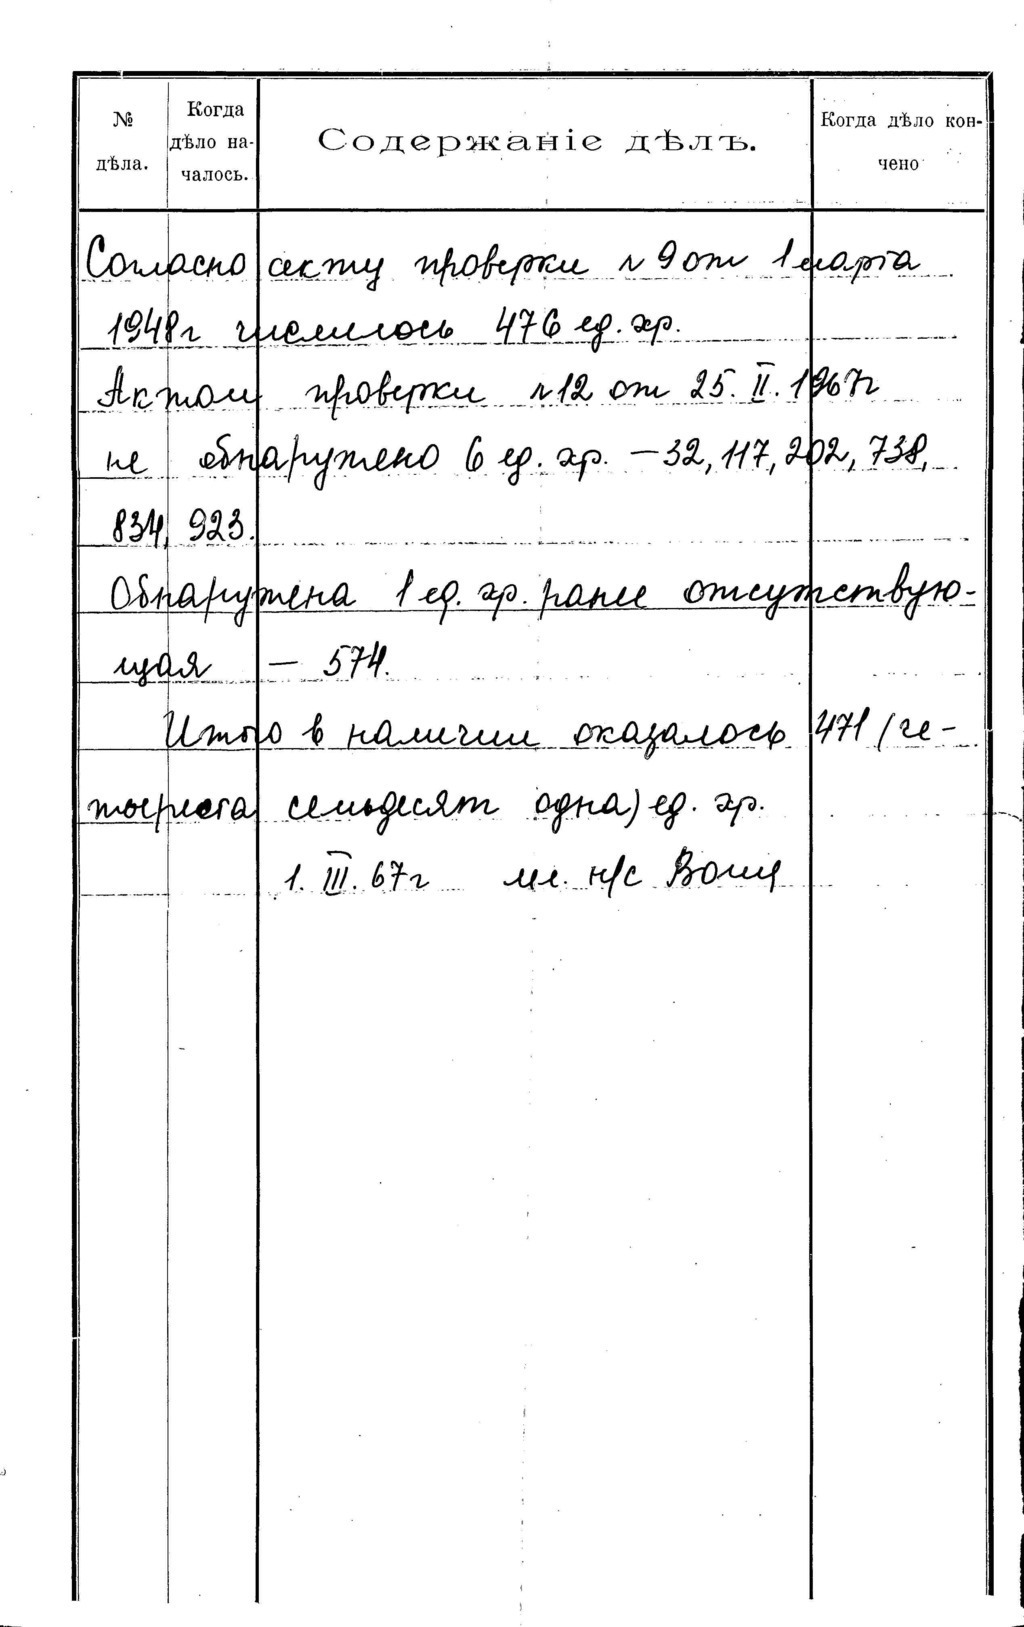 № дѣла.
Когда дѣло на-
чалось.
Содержаніе дѣлъ.
Когда дѣло кон-
чено
Согласно акту проверки № 9 от 1 марта
1948г числилось 476 ед. хр.
Актом проверки № 12 от 25. II. 1967г
не обнаружено 6 ед. хр. – 32, 117, 202, 738,
834, 923.
Обнаружена 1 ед. хр. ранее отсутствую-
щая – 574.
Итого в наличии оказалось 471 (че-
тыреста семьдесят одна) ед. хр.
1. III. 67г мл. н/с